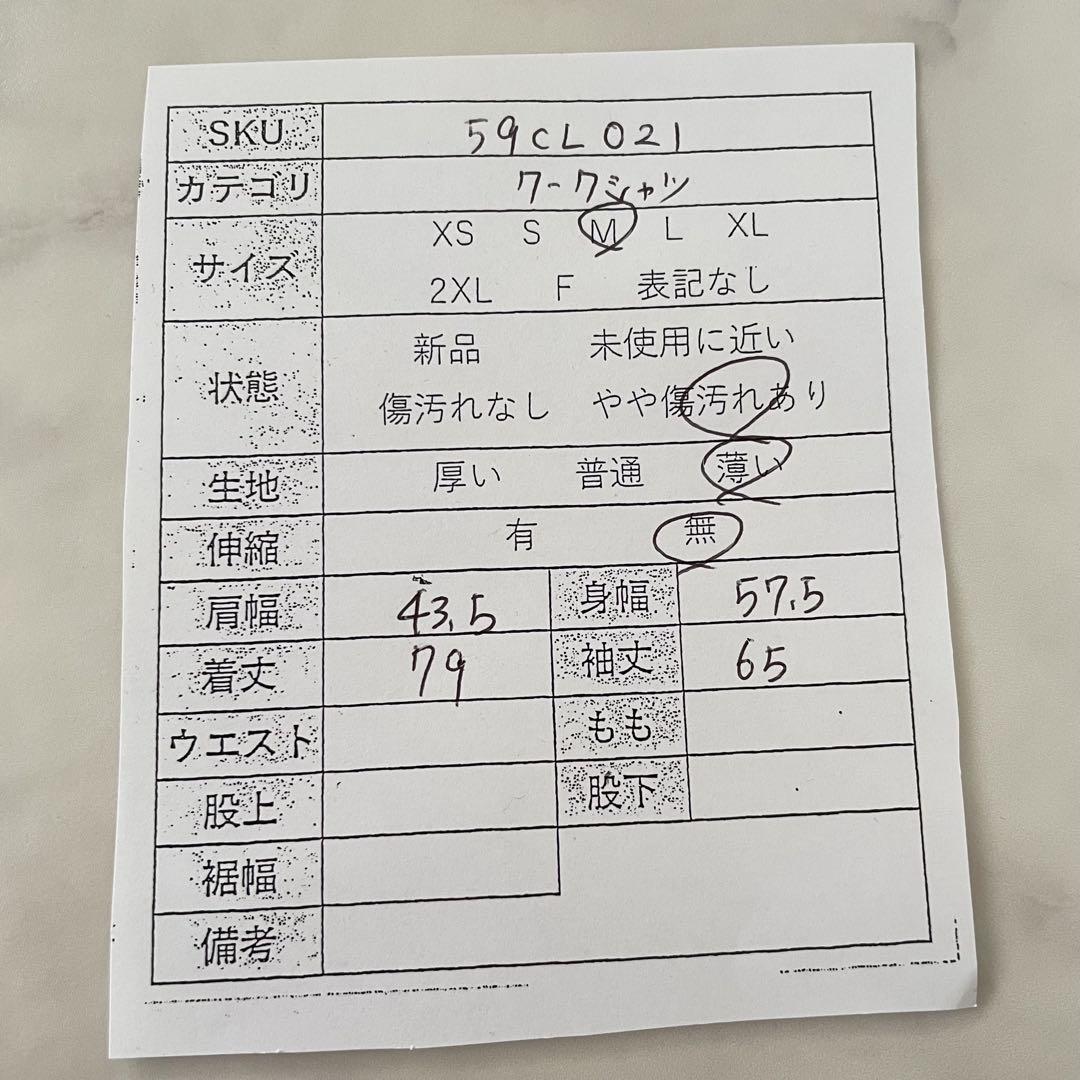 SKU 59CL021
カテゴリ ワークシャツ
サイズ XS S M L XL
2XL F 表記なし
状態 新品 未使用に近い
傷汚れなし やや傷汚れあり
生地 厚い 普通 薄い
伸縮 有 無
肩幅 43.5 身幅 57.5
着丈 79 袖丈 65
ウエスト もも
股上 股下
裾幅
備考